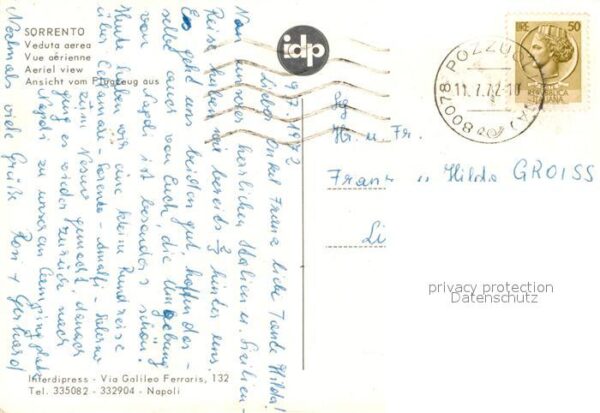 SORRENTO
Veduta aerea
Vue aérienne
Aeriel view
Ansicht vom Flugzeug aus
idp
9.7.1972
Lieber Onkel Franz liebe Tante Hilda!
Von unserer herrlichen Italien u. Sizilien-
Reise haben wir bereits 2/3 hinter uns.
Es geht uns beiden gut, hoffen das-
selbe auch von Euch, die Umgebung
von Napoli ist besonders schön.
Heute haben wir eine kleine Rundreise
über Sorrento - Amalfi - Salerno
zum Vesuv gemacht, danach
ging es wieder zurück nach
Napoli zu unserem Campingplatz
Nochmals viele Grüße Rosi + Gerhard
LIRE 50
REPUBBLICA
ITALIANA
80078 POZZUOLI (NA)
11.7.72-10
Hr. u Fr.
Franz u Hilda GROISS
Li
privacy protection
Datenschutz
Interdipress - Via Galileo Ferraris, 132
Tel. 335082 - 332904 - Napoli